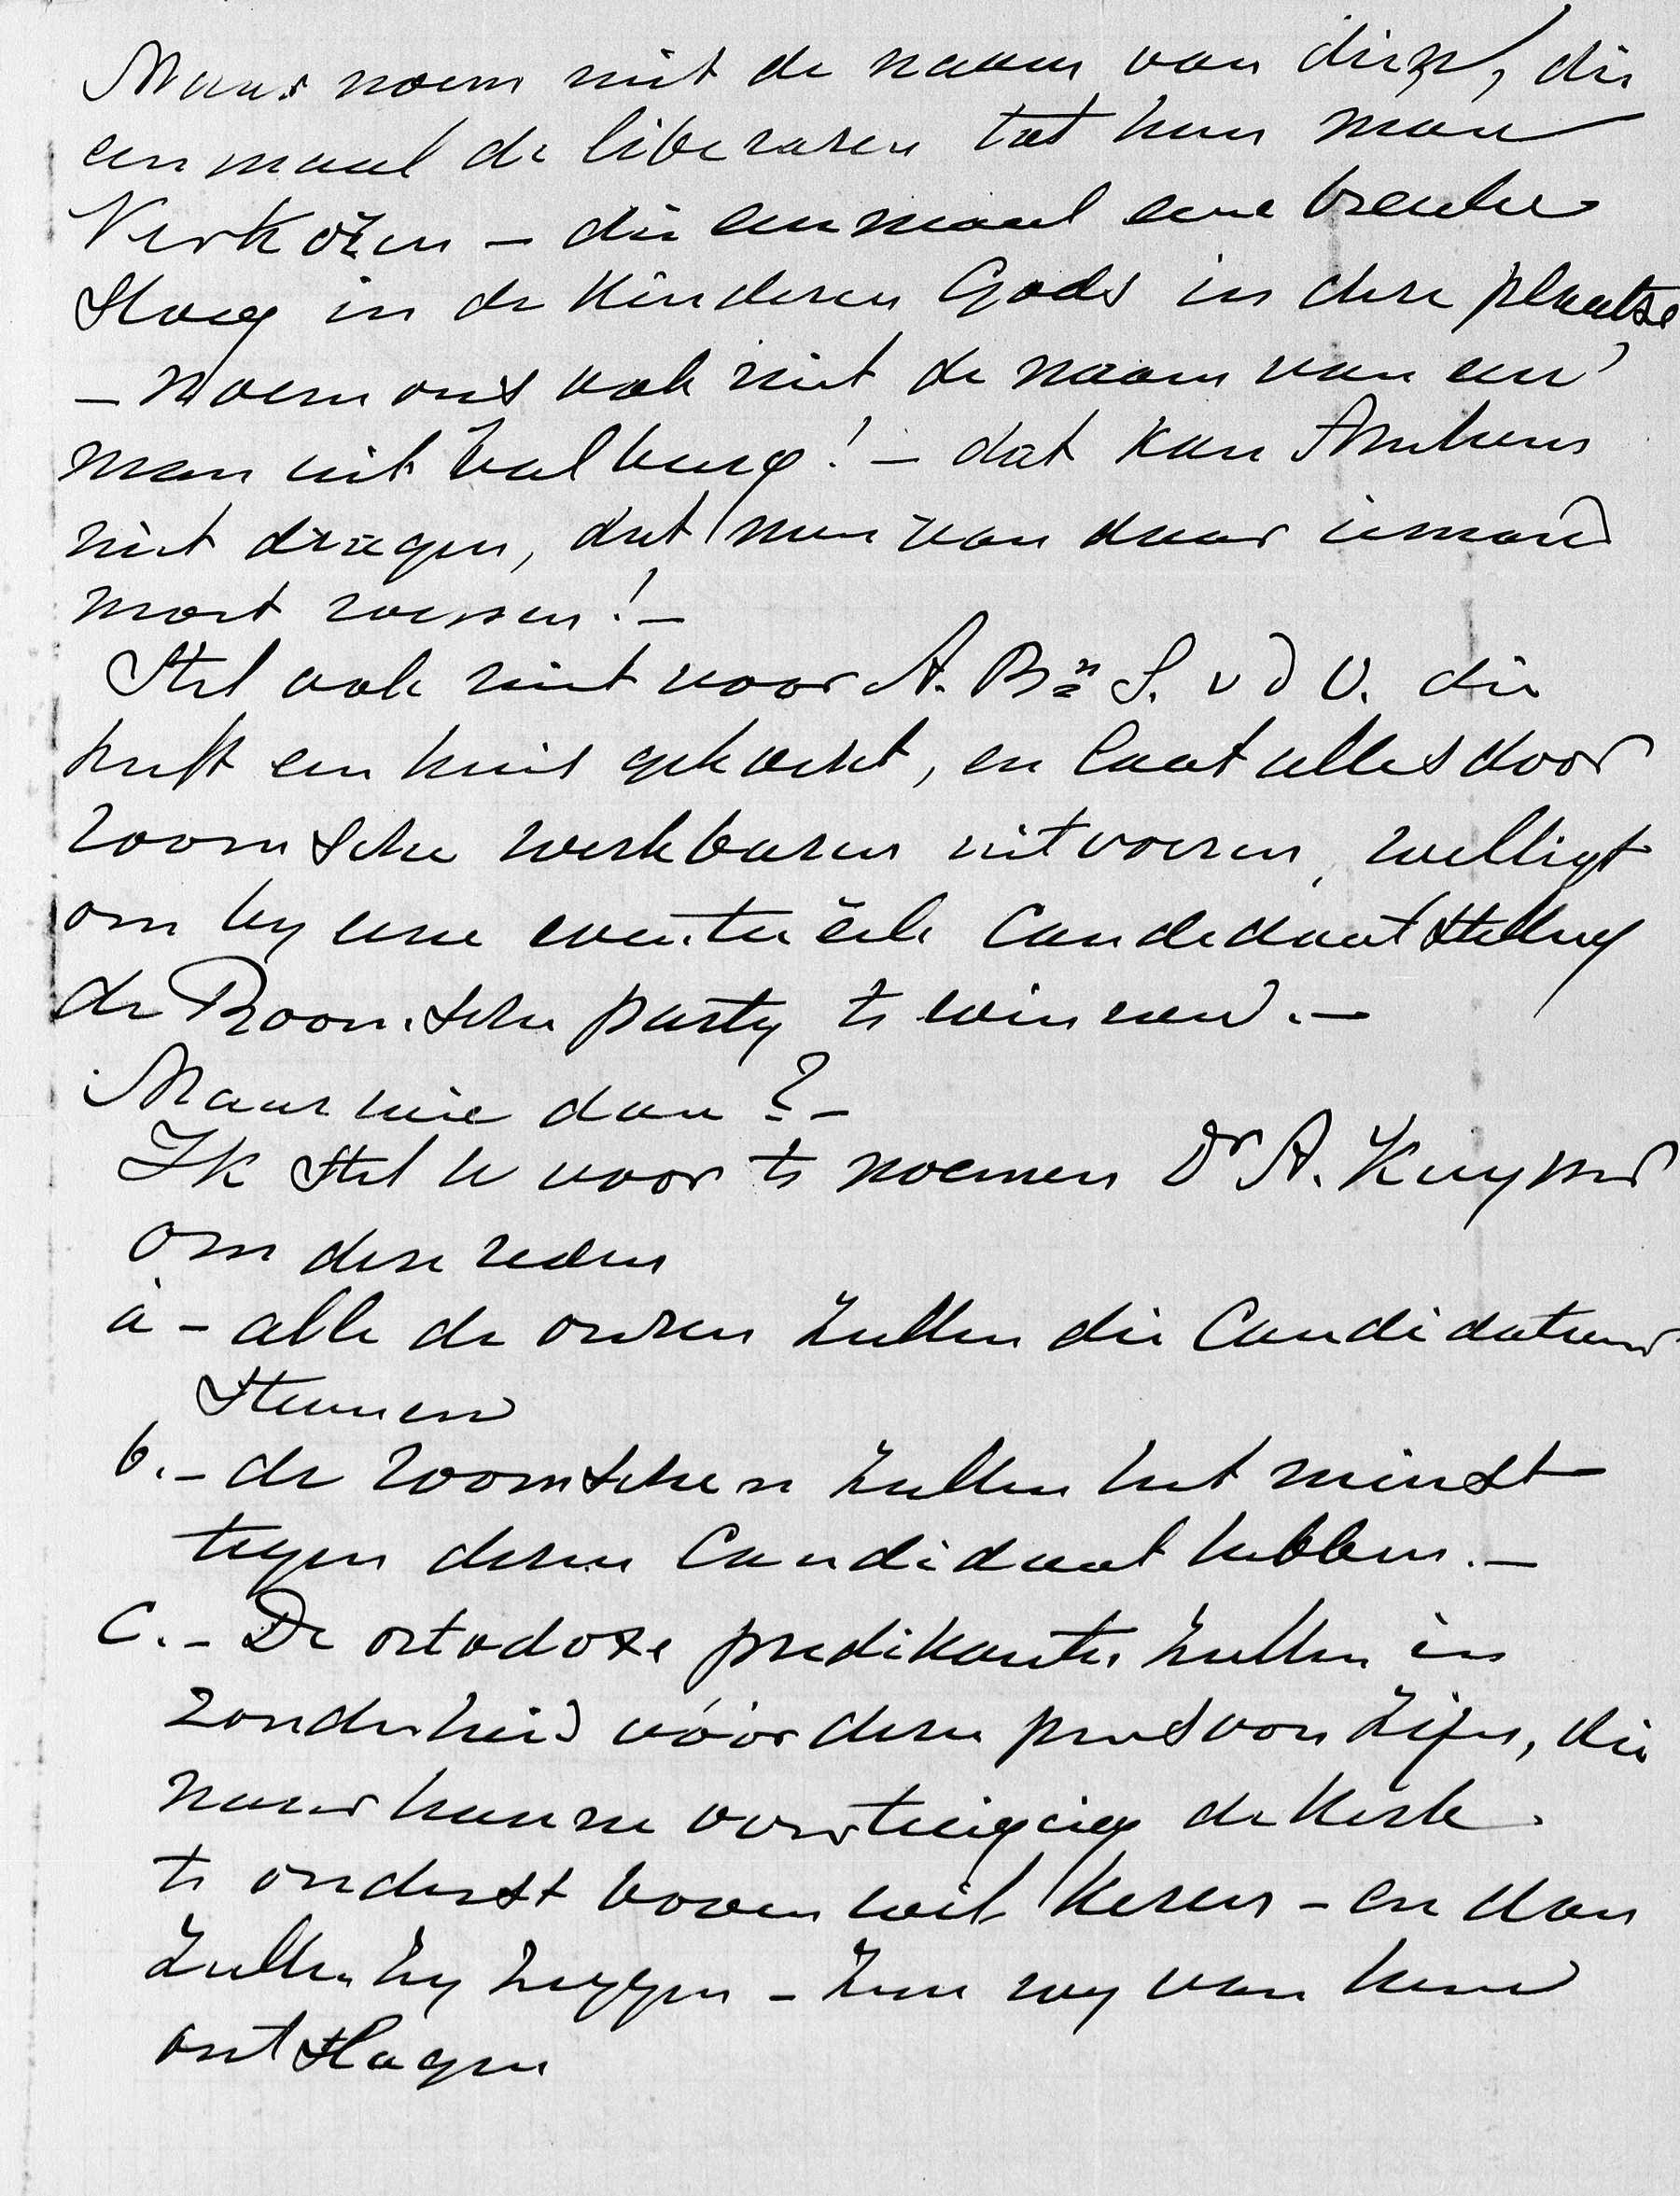 Maar noem niet de naam van dien, die
eenmaal de liberalen tot hun man
Verkozen – die eenmaal eene breuke
Sloeg in de Kinderen Gods in deze plaatse
– noem ons ook niet de naam van een
man uit Walburg! – dat kan Arnhem
niet dragen, dat men van daar iemand
moet roepen! –
Stel ook niet voor A. Bn S. v d O. die
heeft een huis gekocht, en laat alles door
roomsche werkbazen uitvoeren, welligt
om by eene eventuëele Candidaatstelling
de Roomsche party te winnen. –
Maar wie dan? –
Ik Stel U voor te noemen Dr A. Kuyper
om deze reden
a – alle de onzen zullen die Candidatuur
Steunen
b. – de roomschen zullen het minst
tegen dezen Candidaat hebben. –
C. – De ortodoxe predikanten zullen in
zonderheid vóór deze persoon zijn, die
naar hunne overtuiging de Kerk
te onderst boven wil keren – en dan
zullen zy zeggen – zyn wy van hem
ontslagen